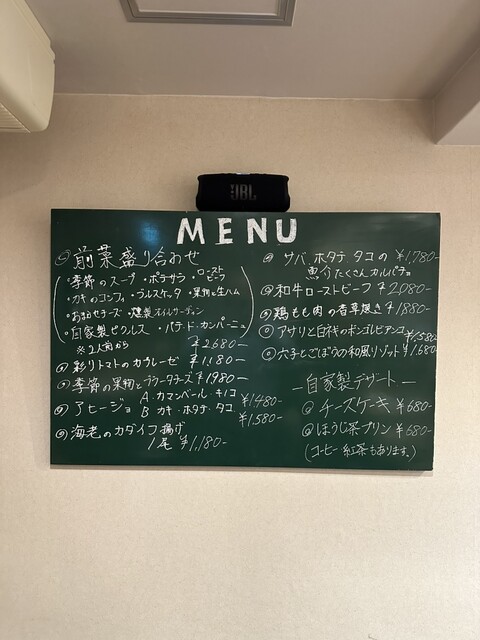 JBL
MENU
◎前菜盛り合わせ
・季節のスープ・ポテサラ・ローストビーフ
・カキのコンフィ・ブルスケッタ・果物と生ハム
・おまかせチーズ・燻製オイルサーディン
・自家製ピクルス・パテ・ド・カンパーニュ
※2人前から ¥2,680-
◎彩りトマトのカプレーゼ ¥1,180-
◎季節の果物とブラータチーズ ¥1980-
◎アヒージョ A.カマンベール・キノコ ¥1,480-
B カキ・ホタテ・タコ ¥1,580-
◎海老のカダイフ揚げ
1尾 ¥1,180-
◎サバ、ホタテ タコの ¥1,780-
魚介たくさんカルパッチョ
◎和牛ローストビーフ ¥2,080-
◎鶏もも肉の香草焼き ¥1880-
◎アサリと白身のボンゴレビアンコ ¥1,580-
◎穴子とごぼうの和風リゾット ¥1,680-
―自家製デザート―
◎チーズケーキ ¥680-
◎ほうじ茶プリン ¥680-
(コーヒー 紅茶もあります。)